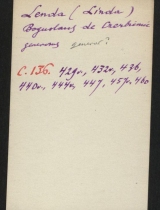 Lenda (Linda)
Boguslaus de
generosus general?
C. 136. 429v, 432v, 436,
440v, 444v, 447, 457v, 460